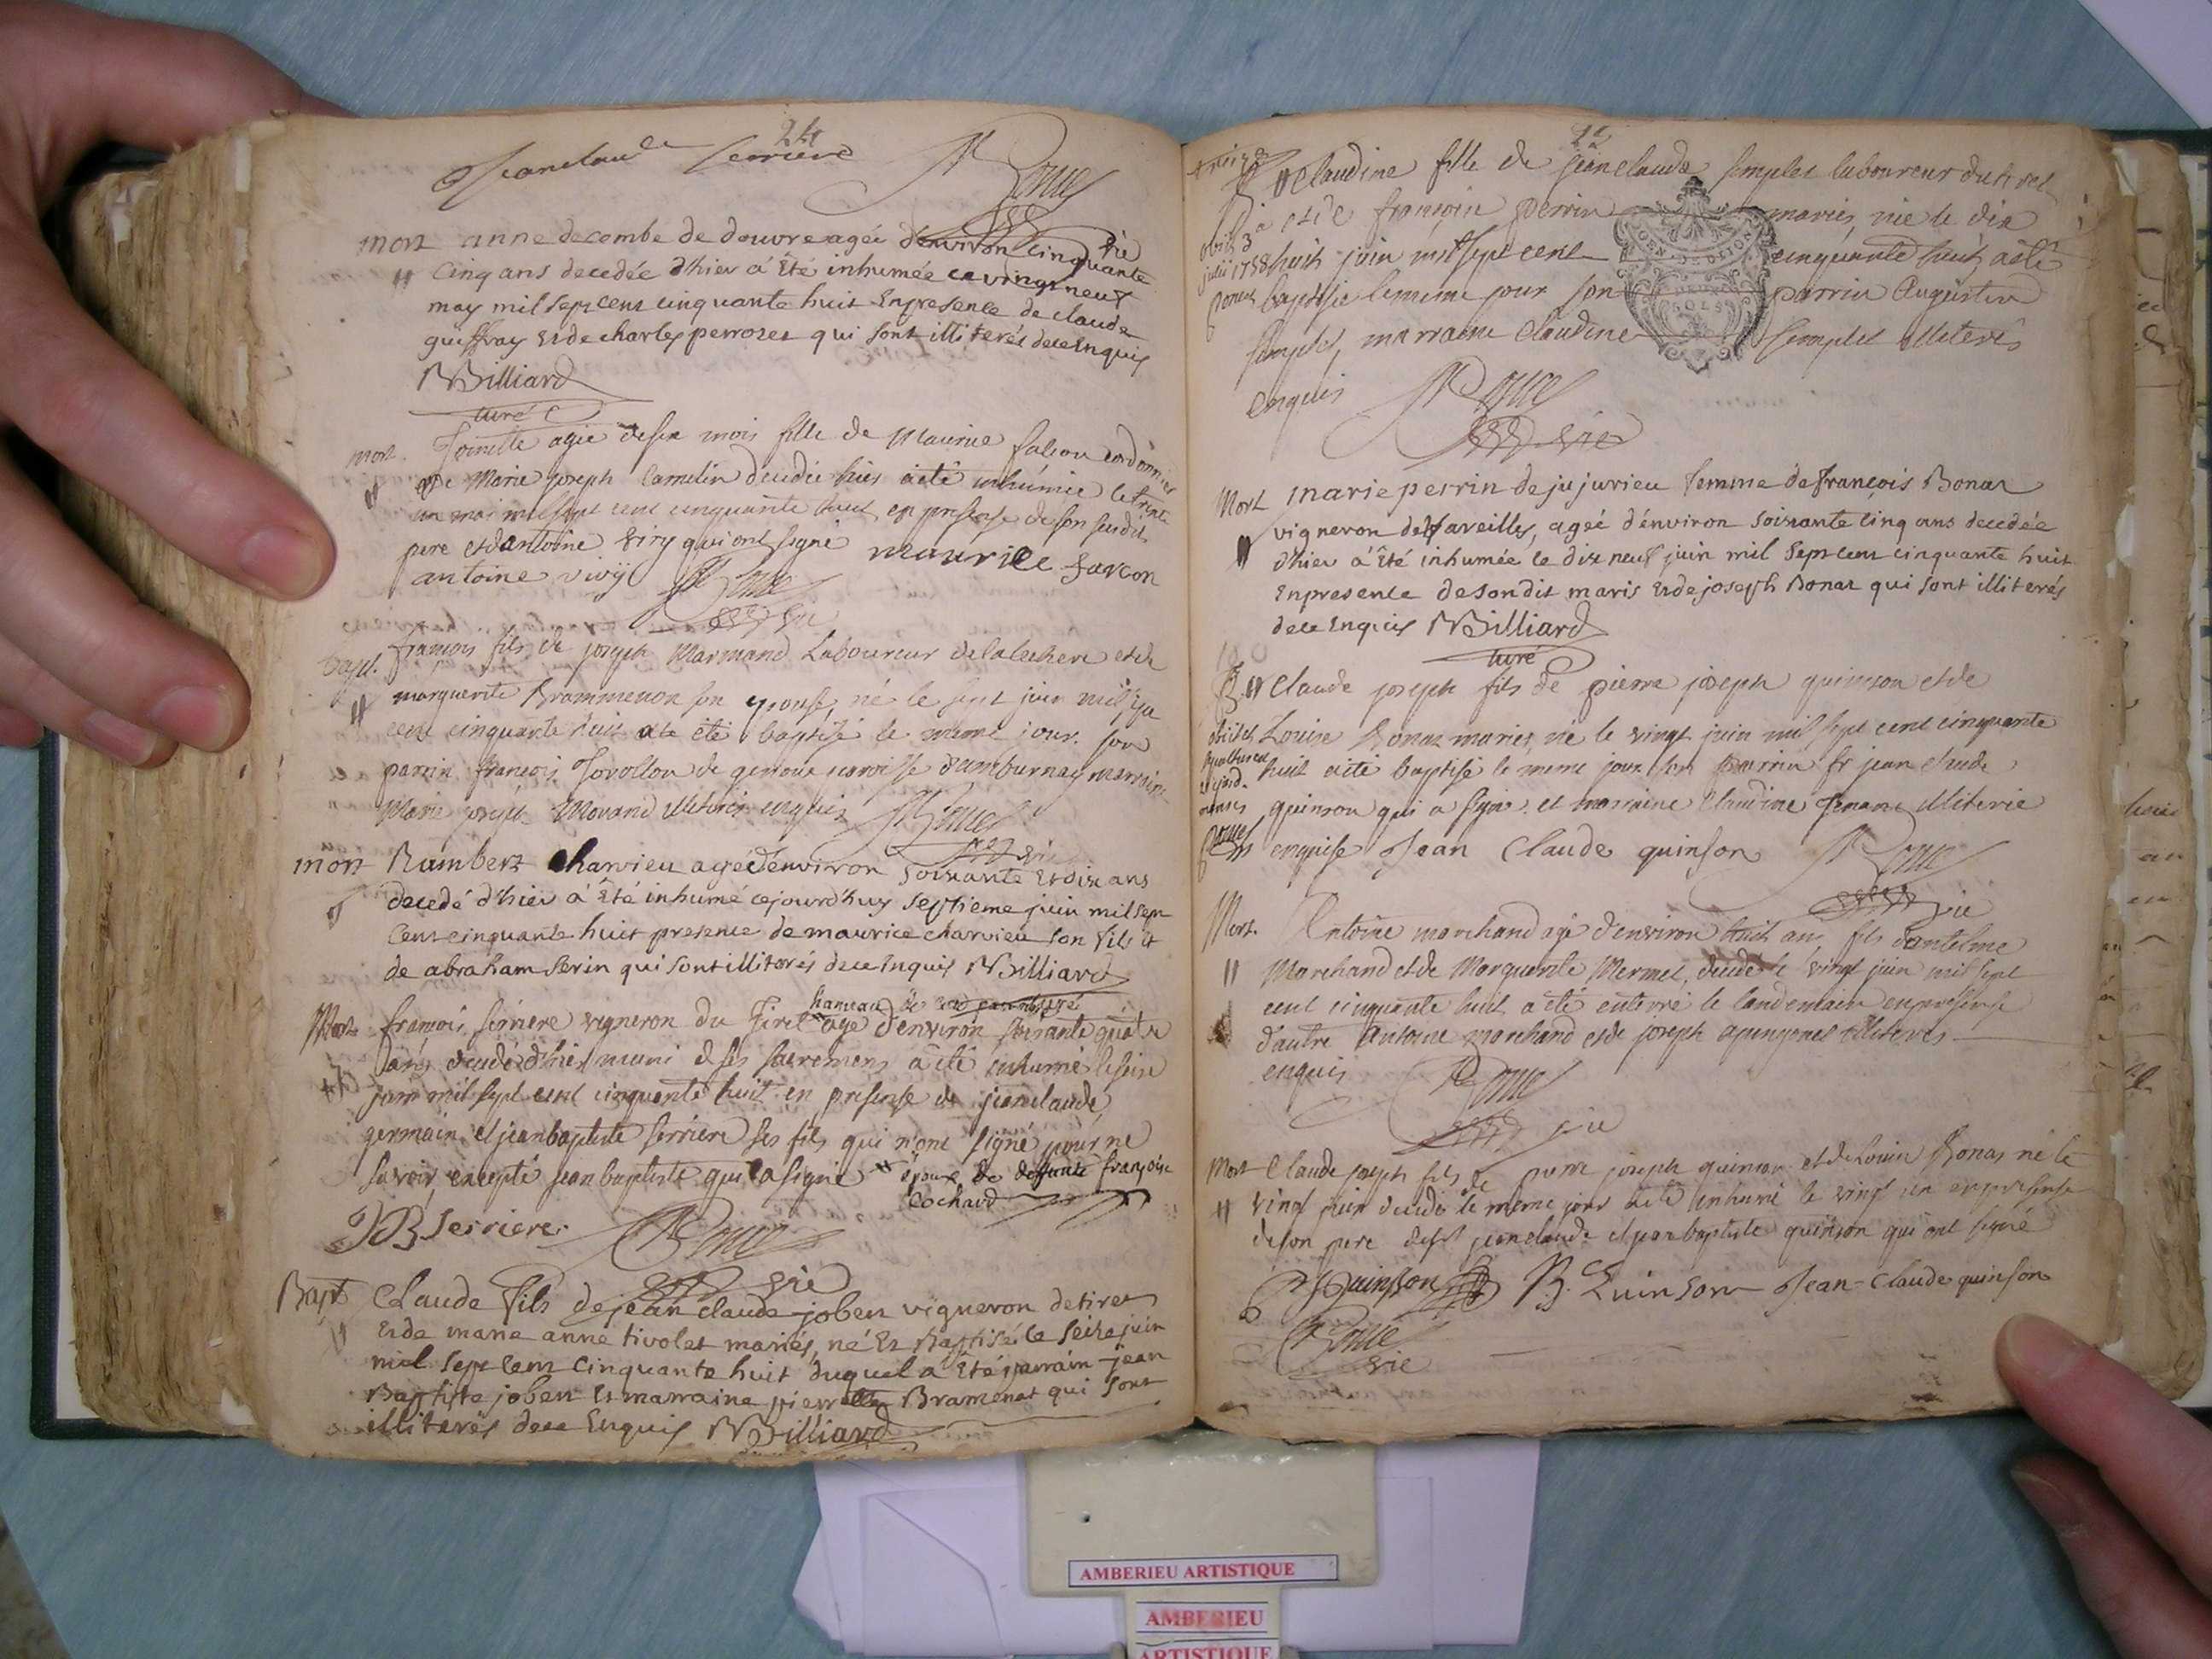 24
Jeanclaude Serriere
mort anne decombe de douvre agée d'environ cinquante
cinq ans decedée d'hier a Eté inhumée ce vingt neuf
may mil sept cent cinquante huit En presence de claude
guiffray Et de charles perrozet qui sont illiterés de ce Enquis
Billiard
curé
mort. agée de six mois fille de Maurice falcon cordonnier
et de Marie joseph Camelin decedée hier a été inhumée le trente
un mai mil sept cent cinquante huit en presense de son susdit
pere et d'antoine viry qui ont signé maurice farcon
antoine viry
vie
bapt. françois fils de joseph Marmand Laboureur de la lechere et de
marguerite Brammenon son epouse, né le sept juin mil sept
cent cinquante huit a été baptisé le même jour. son
parrin françois de paroisse d'amburnay marraine
Marie joseph Morand illiterés enquis
mort Rambert charvieu agé d'environ soixante Et dix ans
decedé d'hier a Eté inhumé cejourd'huy septieme juin mil sept
cent cinquante huit presence de maurice charvieu son fils et
de abraham serin qui sont illiterés de ce Enquis Billiard
curé
Mort françois serriere vigneron du Tiret agé d'environ soixante quatre
ans decedé d'hier muni de ses sacremens a été inhumé le seize
juin mil sept cent cinquante huit en presense de jeanclaude,
germain et jeanbaptiste serriere ses fils qui n'ont signé pour ne
savoir, excepté jeanbaptiste qui a signé epoux de deffunte françoise
Cochaud
JB Serriere
vie
Bapt Claude fils de jean claude joben vigneron de tiret
Et de marie anne tivolet mariés, né Et Baptisé le seize juin
mil sept cent cinquante huit duquel a Eté parrain jean
Baptiste joben Et marraine pierrette Bramenat qui sont
illiterés de ce Enquis Billiard
Claudine fille de jeanclaude semplet laboureur du tiret
et de françoise perrin mariés, née le dix
huit juin mil sept cent cinquante huit a été
baptisée le même jour son parrin Augustin
semplet, marraine Claudine semplet illiterés
enquis
vie
obiit 3a
julii 1758
Mort marie perrin de jujurieu femme de françois Bonaz
vigneron des aveilles, ageé d'environ soixante cinq ans decedée
d'hier a Eté inhumée le dix neuf juin mil sept cent cinquante huit
En presence de son dit maris Et de joseph Bonaz qui sont illiterés
de ce Enquis Billiard
curé
B. Claude joseph fils de pierre joseph quinson et de
Louise Bonaz mariés, né le vingt juin mil sept cent cinquante
huit a été baptisé le meme jour son parrin sr jean claude
quinson qui a signé et marraine Claudine illiterée
enquise Jean Claude quinson
vie
Mort. Antoine marchand agé d'environ huit ans, fils d'antelme
Marchand et de Marguerite Mermet, decedé le vingt juin mil sept
cent cinquante huit a été enterré le landemain en presense
d'autre Antoine marchand et de joseph illiterés
enquis
vie
Mort Claude joseph fils de pierre joseph quinson et de Louise Bonaz né le
vingt juin decedé le meme jour a été inhumé le vingt un en presense
de son pere de jeanclaude et jeanbaptiste quinson qui ont signé
Quinson B. Quinson Jean-Claude quinson
vie
AMBERIEU ARTISTIQUE
AMBERIEU
ARTISTIQUE